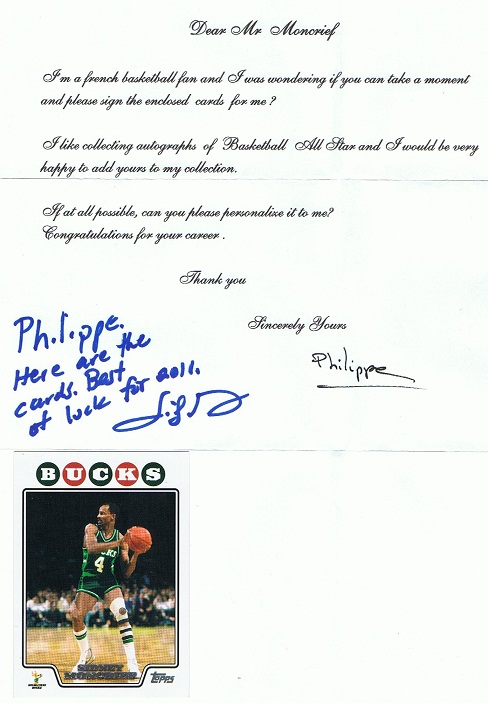 Dear Mr Moncrief
I'm a french basketball fan and I was wondering if you can take a moment
and please sign the enclosed cards for me ?
I like collecting autographs of Basketball All Star and I would be very
happy to add yours to my collection.
If at all possible, can you please personalize it to me?
Congratulations for your career .
Thank you
Sincerely Yours
Philippe
Philippe.
Here are the
cards. Best
of luck for 2011.
BUCKS
4
SIDNEY
MONCRIEF
Topps